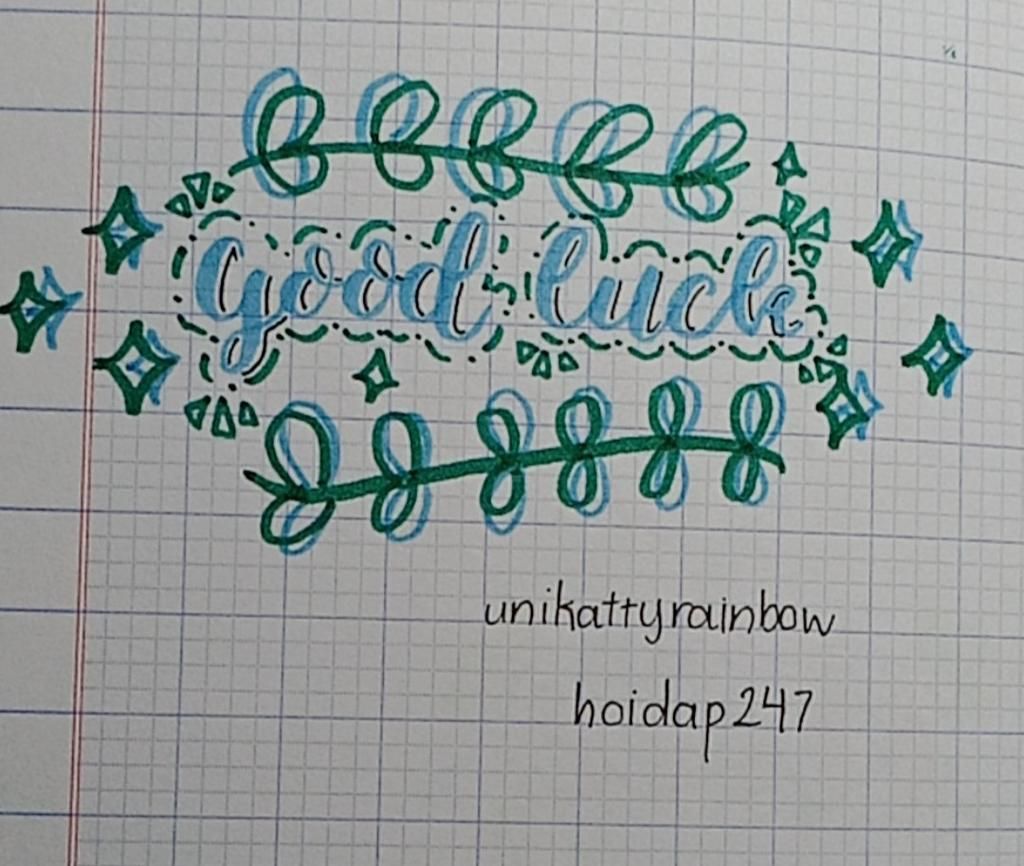 good luck
unikattyrainbow
hoidap247